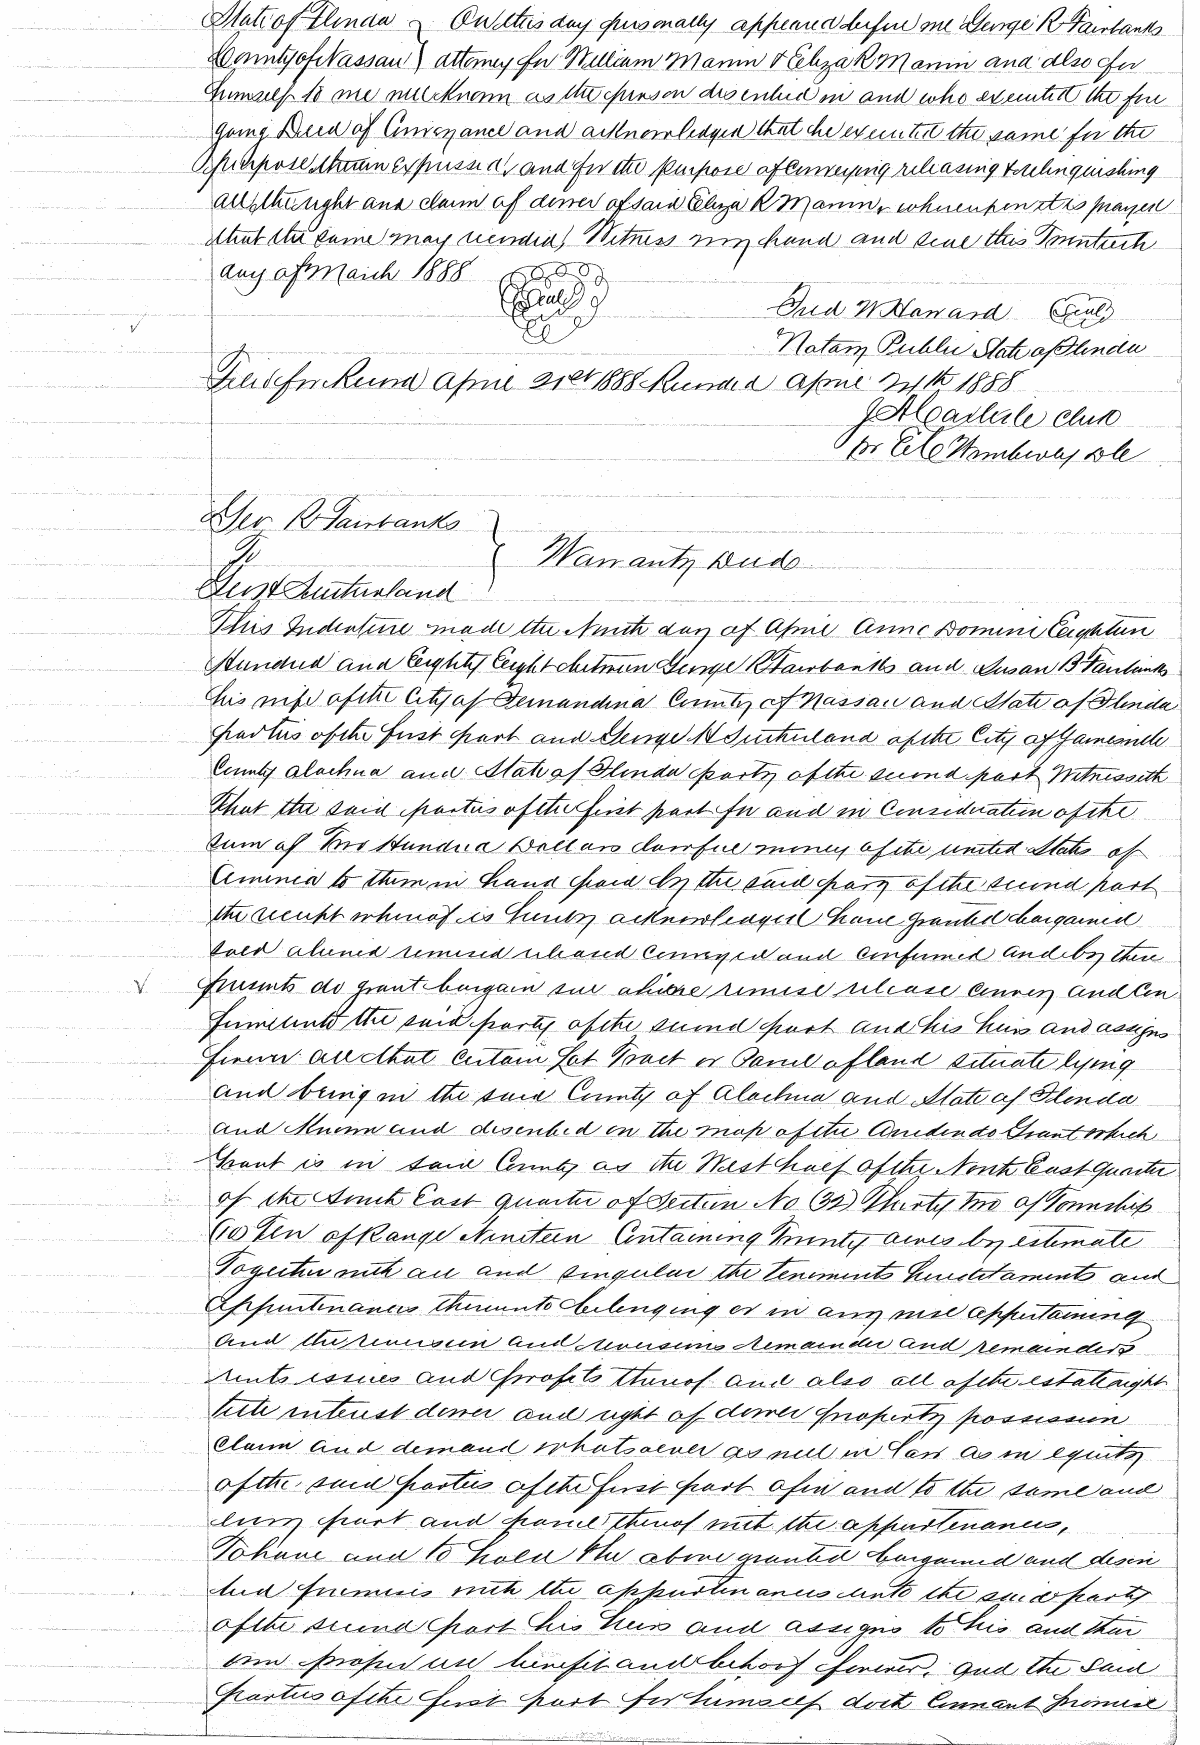 State of Florida } On this day personally appeared before me George R Fairbanks
County of Nassau } attorney for William Marvin & Eliza R Marvin and also for
himself to me well known as the person described in and who executed the fore
going Deed of Conveyance and acknowledged that he executed the same for the
purpose therein expressed, and for the purpose of Conveying releasing & relinquishing
all the right and claim of dower of said Eliza R Marvin, whereupon it is prayed
that the same may recorded, Witness my hand and seal this Twentieth
day of March 1888
Seal
Fred W Howard Seal
Notary Public State of Florida
Filed for Record April 21st 1888 Recorded April 24th 1888
J A Carlisle Clerk
pr D C
Geo R Fairbanks
To
Geo Sutherland
} Warranty Deed
This Indenture made the Ninth day of April Anno Domini Eighteen
Hundred and Eighty Eight between George R Fairbanks and Susan B Fairbanks
his wife of the City of Fernandina County of Nassau and State of Florida
parties of the first part and George Sutherland of the City of Gainesville
County Alachua and State of Florida party of the second part Witnesseth
That the said parties of the first part for and in Consideration of the
sum of Two Hundred Dollars lawful money of the united States of
America to them in hand paid by the said party of the second part
the receipt whereof is hereby acknowledged have granted bargained
sold aliened remised released Conveyed and Confirmed and by these
presents do grant bargain sell aliene remise release Convey and Con
firm unto the said party of the second part and his heirs and assigns
forever all that certain Lot Tract or Parcel of land situate lying
and being in the said County of Alachua and State of Florida
and Known and described on the map of the Arredondo Grant which
Grant is in said County as the West half of the North East quarter
of the South East quarter of Section No (32) Thirty two of Township
(10) Ten of Range Nineteen Containing Twenty acres by estimate
Together with all and singular the tenements hereditaments and
appurtenances thereunto belonging or in any wise appertaining
and the reversion and reversions remainder and remainders
rents issues and profits thereof and also all of the estate right
title interest dower and right of dower property possession
claim and demand whatsoever as well in Law as in equity
of the said parties of the first part of in and to the same and
every part and parcel thereof with the appurtenances,
To have and to hold the above granted bargained and descri
bed premises with the appurtenances unto the said party
of the second part his heirs and assigns to his and their
own proper use benefit and behoof forever, and the said
parties of the first part for himself doth Covenant promise